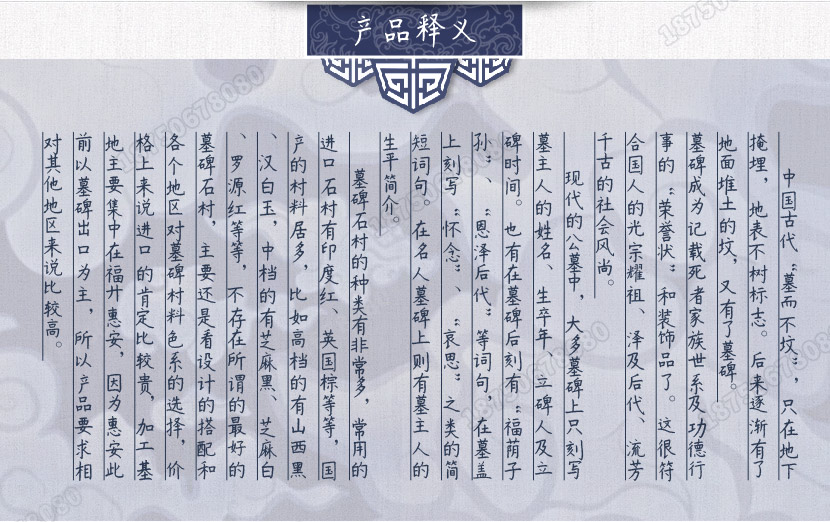 产品释义
中国古代“墓而不坟”，只在地下
掩埋，地表不树标志。后来逐渐有了
地面堆土的坟，又有了墓碑。
墓碑成为记载死者家族世系及功德行
事的“荣誉状”和装饰品了。这很符
合国人的光宗耀祖、泽及后代、流芳
千古的社会风尚。
现代的公墓中，大多墓碑上只刻写
墓主人的姓名、生卒年、立碑人及立
碑时间。也有在墓碑后刻有“福荫子
孙”、“恩泽后代”等词句，在墓盖
上刻写“怀念”、“哀思”之类的简
短词句。在名人墓碑上则有墓主人的
生平简介。
墓碑石村的种类有非常多，常用的
进口石村有印度红、英国棕等等，国
产的村料居多，比如高档的有山西黑
、汉白玉，中档的有芝麻黑、芝麻白
、罗源红等等，不存在所谓的最好的
墓碑石村，主要还是看设计的搭配和
各个地区对墓碑村料色系的选择，价
格上来说进口的肯定比较贵，加工基
地主要集中在福廾惠安，因为惠安此
前以墓碑出口为主，所以产品要求相
对其他地区来说比较高。
18750678080
18750678080
18750678080
18750678080
18750678080